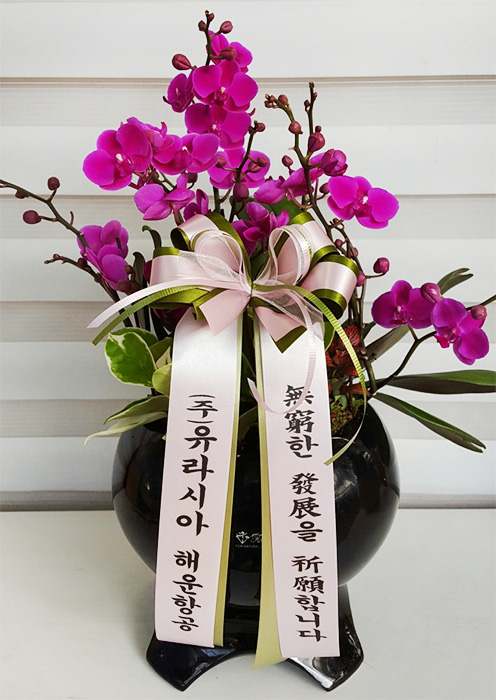 (주)유라시아 해운항공
無窮한 發展을 祈願합니다